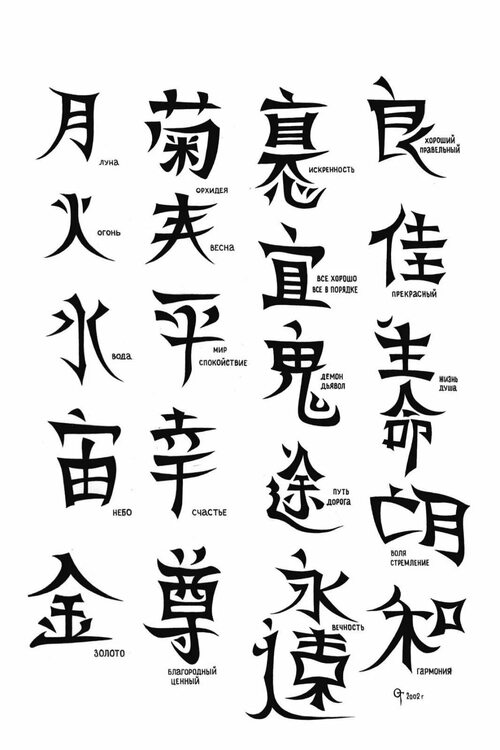 月
ЛУНА
火
ОГОНЬ
水
ВОДА
宙
НЕБО
金
ЗОЛОТО
菊
ОРХИДЕЯ
夫
ВЕСНА
平
МИР
СПОКОЙСТВИЕ
幸
СЧАСТЬЕ
尊
БЛАГОРОДНЫЙ
ЦЕННЫЙ
ИСКРЕННОСТЬ
宜
ВСЕ ХОРОШО
ВСЕ В ПОРЯДКЕ
鬼
ДЕМОН
ДЬЯВОЛ
途
ПУТЬ
ДОРОГА
永
遠
ВЕЧНОСТЬ
良
ХОРОШИЙ
ПРАВЕЛЬНЫЙ
佳
ПРЕКРАСНЫЙ
生
命
ЖИЗНЬ
ДУША
ВОЛЯ
СТРЕМЛЕНИЕ
和
ГАРМОНИЯ
2002 г